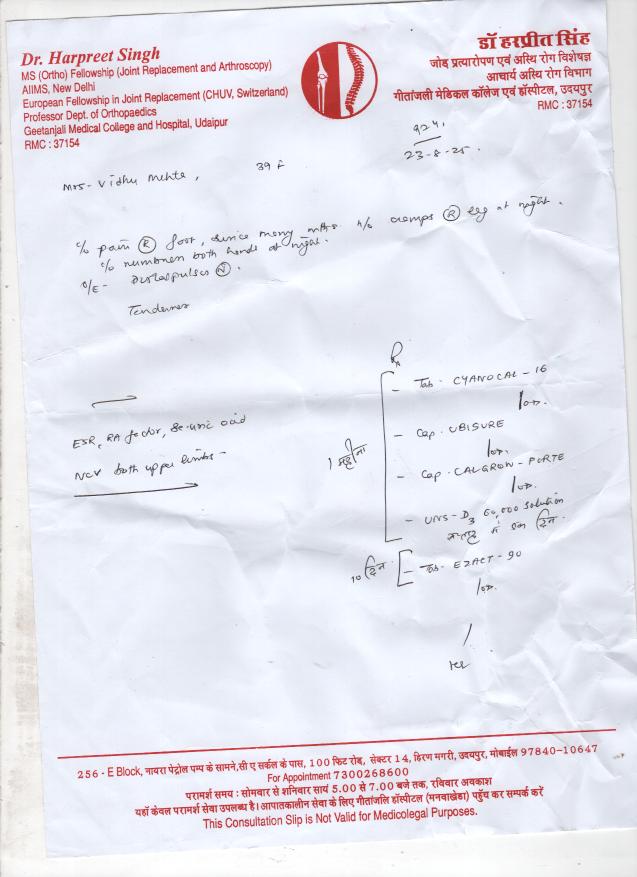 Dr. Harpreet Singh
MS (Ortho) Fellowship (Joint Replacement and Arthroscopy)
AIIMS, New Delhi
European Fellowship in Joint Replacement (CHUV, Switzerland)
Professor Dept. of Orthopaedics
Geetanjali Medical College and Hospital, Udaipur
RMC : 37154
डॉ हरप्रीत सिंह
जोड़ प्रत्यारोपण एवं अस्थि रोग विशेषज्ञ
आचार्य अस्थि रोग विभाग
गीतांजली मेडिकल कॉलेज एवं हॉस्पीटल, उदयपुर
RMC : 37154
23-8-25.
Mrs- Vidhu Mehta, 39 F
c/o pain (R) foot, since many mths h/o cramps (R) leg at night.
c/o numbness both hands at night.
O/E- Distal pulses (N).
Tenderness
Rx
- Tab. CYANOCAL - 16
1 od.
- Cap. UBISURE
1 od.
- Cap. CALGROW - FORTE
1 od.
- UNS - D3 60,000 solution
सप्ताह में एक दिन.
1 महीना
10 दिन - Tab. EZACT - 90
1 od.
ESR, RA factor, Se-uric acid
NCV both upper limbs -
256 - E Block, नायरा पेट्रोल पम्प के सामने, सी ए सर्कल के पास, 100 फिट रोड़, सेक्टर 14, हिरण मगरी, उदयपुर, मोबाईल 97840-10647
For Appointment 7300268600
परामर्श समय : सोमवार से शनिवार सायं 5.00 से 7.00 बजे तक, रविवार अवकाश
यहाँ केवल परामर्श सेवा उपलब्ध है। आपातकालीन सेवा के लिए गीतांजलि हॉस्पीटल (मनवाखेडा) पहुँच कर सम्पर्क करें
This Consultation Slip is Not Valid for Medicolegal Purposes.